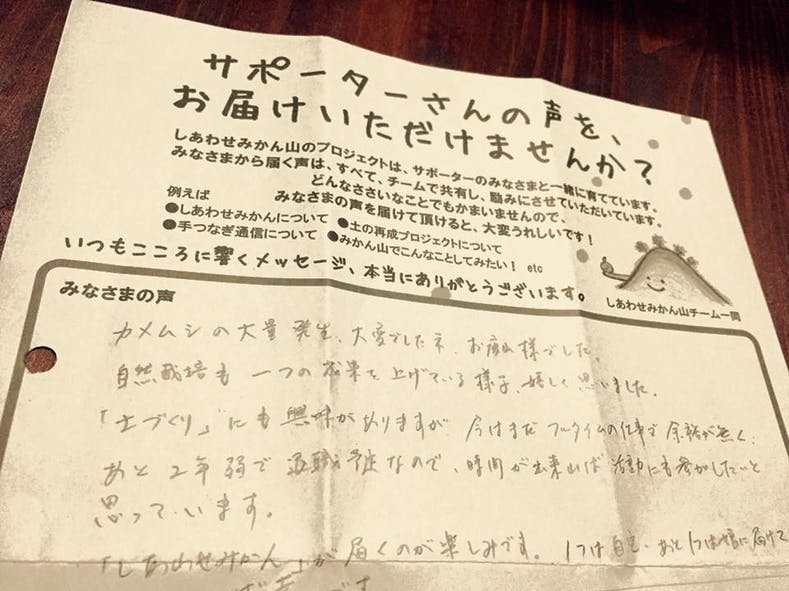 サポーターさんの声を、
お届けいただけませんか？
しあわせみかん山のプロジェクトは、サポーターのみなさまと一緒に育てています。
みなさまから届く声は、すべて、チームで共有し、励みにさせていただいています。
どんなささいなことでもかまいませんので、
みなさまの声を届けて頂けると、大変うれしいです！
例えば
●しあわせみかんについて ●土の再成プロジェクトについて
●手つなぎ通信について ●みかん山でこんなことしてみたい！ etc
いつもこころに響くメッセージ、本当にありがとうございます。
しあわせみかん山チーム一同
みなさまの声
カメムシの大量発生、大変でしたネ。お疲れ様でした。
自然栽培も一つの成果を上げている様子、嬉しく思いました。
「土づくり」にも興味がありますが 今はまだ フルタイムの仕事で 余裕が無く、
あと2年弱で退職予定なので、時間が出来れば活動にも参加したいと
思っています。
「しあわせみかん」が届くのが楽しみです。1つは自宅、あと1つは 届けて
です